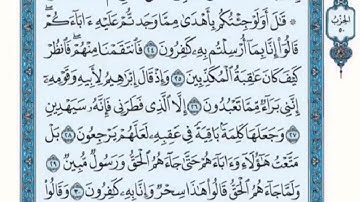 ۞ قَٰلَ أَوَلَوۡ جِئۡتُكُم بِأَهۡدَىٰ مِمَّا وَجَدتُّمۡ عَلَيۡهِ ءَابَآءَكُمۡۖ
قَالُوٓاْ إِنَّا بِمَآ أُرۡسِلۡتُم بِهِۦ كَٰفِرُونَ ٢٤ فَٱنتَقَمۡنَا مِنۡهُمۡۖ فَٱنظُرۡ
كَيۡفَ كَانَ عَٰقِبَةُ ٱلۡمُكَذِّبِينَ ٢٥ وَإِذۡ قَالَ إِبۡرَٰهِيمُ لِأَبِيهِ وَقَوۡمِهِۦٓ
إِنَّنِي بَرَآءٞ مِّمَّا تَعۡبُدُونَ ٢٦ إِلَّا ٱلَّذِي فَطَرَنِي فَإِنَّهُۥ سَيَهۡدِينِ
٢٧ وَجَعَلَهَا كَلِمَةَۢ بَاقِيَةٗ فِي عَقِبِهِۦ لَعَلَّهُمۡ يَرۡجِعُونَ ٢٨ بَلۡ
مَتَّعۡتُ هَٰٓؤُلَآءِ وَءَابَآءَهُمۡ حَتَّىٰ جَآءَهُمُ ٱلۡحَقُّ وَرَسُولٞ مُّبِينٞ ٢٩
وَلَمَّا جَآءَهُمُ ٱلۡحَقُّ قَالُواْ هَٰذَا سِحۡرٞ وَإِنَّا بِهِۦ كَٰفِرُونَ ٣٠ وَقَالُواْ
الحزب
٥٠